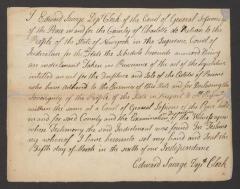 I Edward Savage Dep^t Clerk of the Court of General Sessions
of the Peace in and for the County of Charlotte do Return to the
People of the State of New York in the Supreme Court of
Judicature to the State the schedule hereunto annexed being
an Indictment Taken in Pursuance of the act of the Legislature
entitled an act for the forfeiture and Sale of the Estates of Persons
who have adhered to the Enemies of this State and for Declaring the
Sovereignty of the People of the State in respect to all Property
within the same at a Court of General Sessions of the Peace held
in and for the County and the Examination of the Witnesses upon
whose Testimony the said Indictment was found In Testimony
whereof I have hereunto set my hand and Seal the
day of March in the sixth of our Independence
Edward Savage Dep^t Clerk